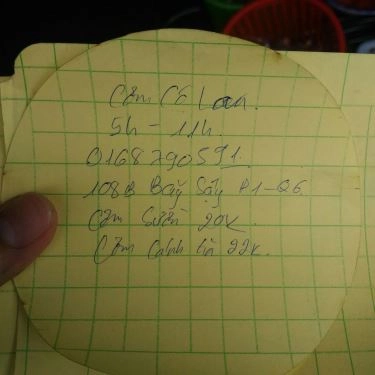 Cơm Cô Loan.
5h - 11h.
0168790591.
108B Bãy Sậy P1-Q6.
Cơm Sườn 20K.
Cơm 22K.